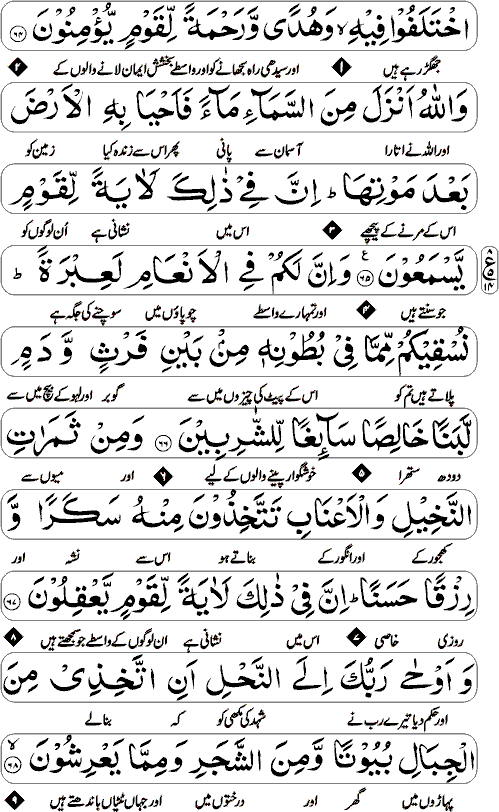 اخْتَلَفُوْا فِيْهِ ۙ وَهُدًى وَّرَحْمَةً لِّقَوْمٍ يُّؤْمِنُوْنَ ﴿۶۴﴾
جھگڑ رہے ہیں ۱ اور سیدھی راہ سجھانے کو اور واسطے بخشش ایمان لانے والوں کے ۲
وَاللّٰهُ اَنْزَلَ مِنَ السَّمَآءِ مَآءً فَاَحْيَا بِهِ الْاَرْضَ
اور اللہ نے اتارا آسمان سے پانی پھر اس سے زندہ کیا زمین کو
بَعْدَ مَوْتِهَا ؕ اِنَّ فِيْ ذٰلِكَ لَاٰيَةً لِّقَوْمٍ
اس کے مرنے کے پیچھے ۳ اس میں نشانی ہے اُن لوگوں کو
يَّسْمَعُوْنَ ﴿۶۵﴾ ع وَاِنَّ لَكُمْ فِي الْاَنْعَامِ لَعِبْرَةً ؕ
جو سنتے ہیں ۴ اور تمہارے واسطے چوپاؤں میں سوچنے کی جگہ ہے
نُسْقِيْكُمْ مِّمَّا فِيْ بُطُوْنِهٖ مِنْۢ بَيْنِ فَرْثٍ وَّدَمٍ
پلاتے ہیں تم کو اس کے پیٹ کی چیزوں میں سے گوبر اور لہو کے بیچ میں سے
لَّبَنًا خَالِصًا سَآئِغًا لِّلشّٰرِبِيْنَ ﴿۶۶﴾ وَمِنْ ثَمَرٰتِ
دودھ ستھرا ۵ خوشگوار پینے والوں کے لیے ۶ اور میوں سے
النَّخِيْلِ وَالْاَعْنَابِ تَتَّخِذُوْنَ مِنْهُ سَكَرًا وَّ
کھجور کے اور انگور کے بناتے ہو اس سے نشہ اور
رِزْقًا حَسَنًا ؕ اِنَّ فِيْ ذٰلِكَ لَاٰيَةً لِّقَوْمٍ يَّعْقِلُوْنَ ﴿۶۷﴾
روزی خاصی ۷ اس میں نشانی ہے ان لوگوں کے واسطے جو سمجھتے ہیں ۸
وَاَوْحٰى رَبُّكَ اِلَى النَّحْلِ اَنِ اتَّخِذِيْ مِنَ
اور حکم دیا تیرے رب نے شہد کی مکھی کو کہ بنا لے
الْجِبَالِ بُيُوْتًا وَّمِنَ الشَّجَرِ وَمِمَّا يَعْرِشُوْنَ ﴿۶۸﴾ ۙ
پہاڑوں میں گھر اور درختوں میں اور جہاں ٹٹیاں باندھتے ہیں ۹